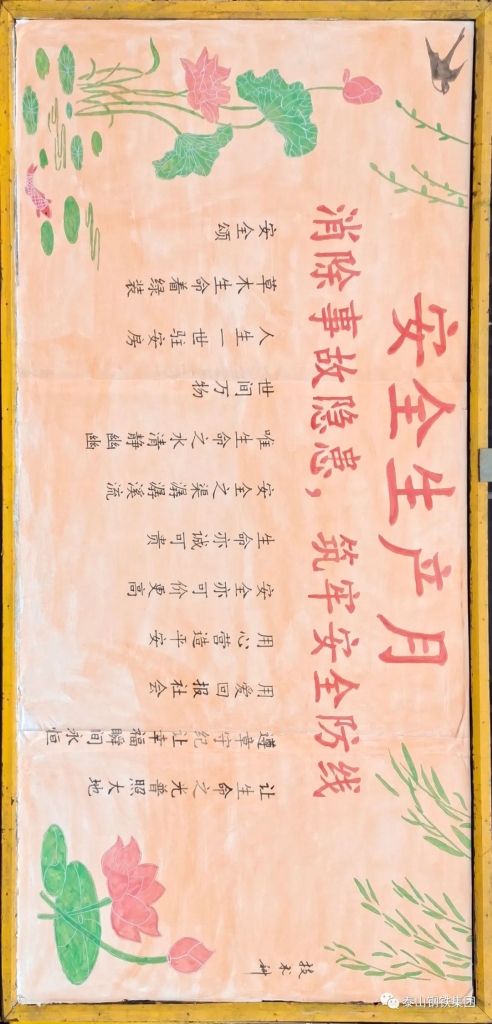 安全生产月
消除事故隐患，筑牢安全防线
安全颂
草木生命看绿装
人生一世驻安房
世间万物
唯生命之水清静幽幽
安全之渠潺潺溪流
生命亦诚可贵
安全亦可价更高
用心营造平安
用爱回报社会
遵章守纪让幸福瞬间永恒
让生命之光普照大地
技术科
泰山钢铁集团